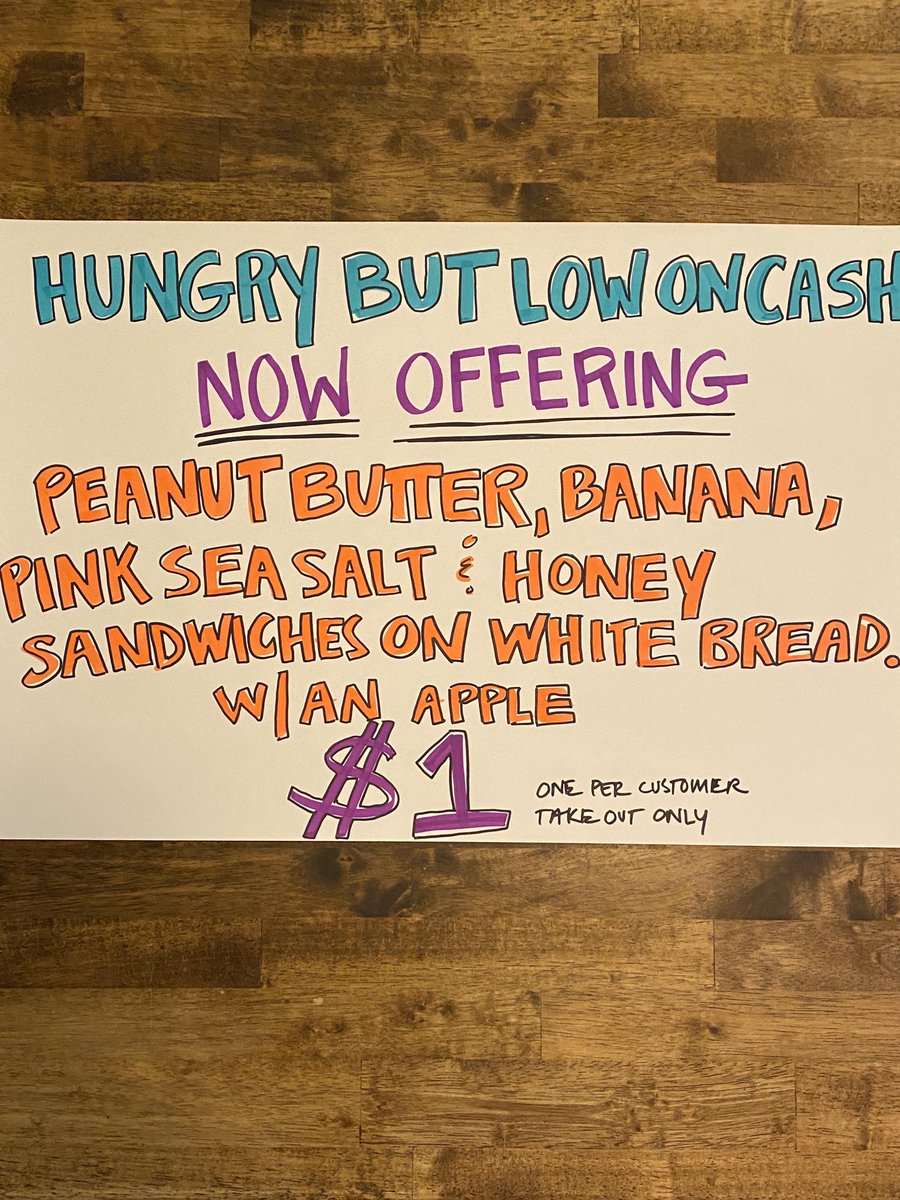 HUNGRY BUT LOW ON CASH
NOW OFFERING
PEANUT BUTTER, BANANA,
PINK SEA SALT & HONEY
SANDWICHES ON WHITE BREAD.
W/AN APPLE
$1
ONE PER CUSTOMER
TAKE OUT ONLY